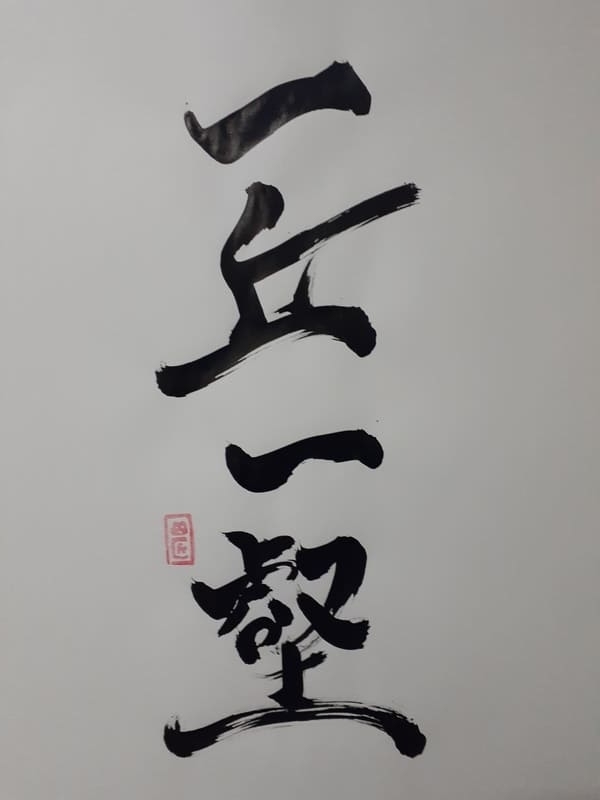 一丘一壑